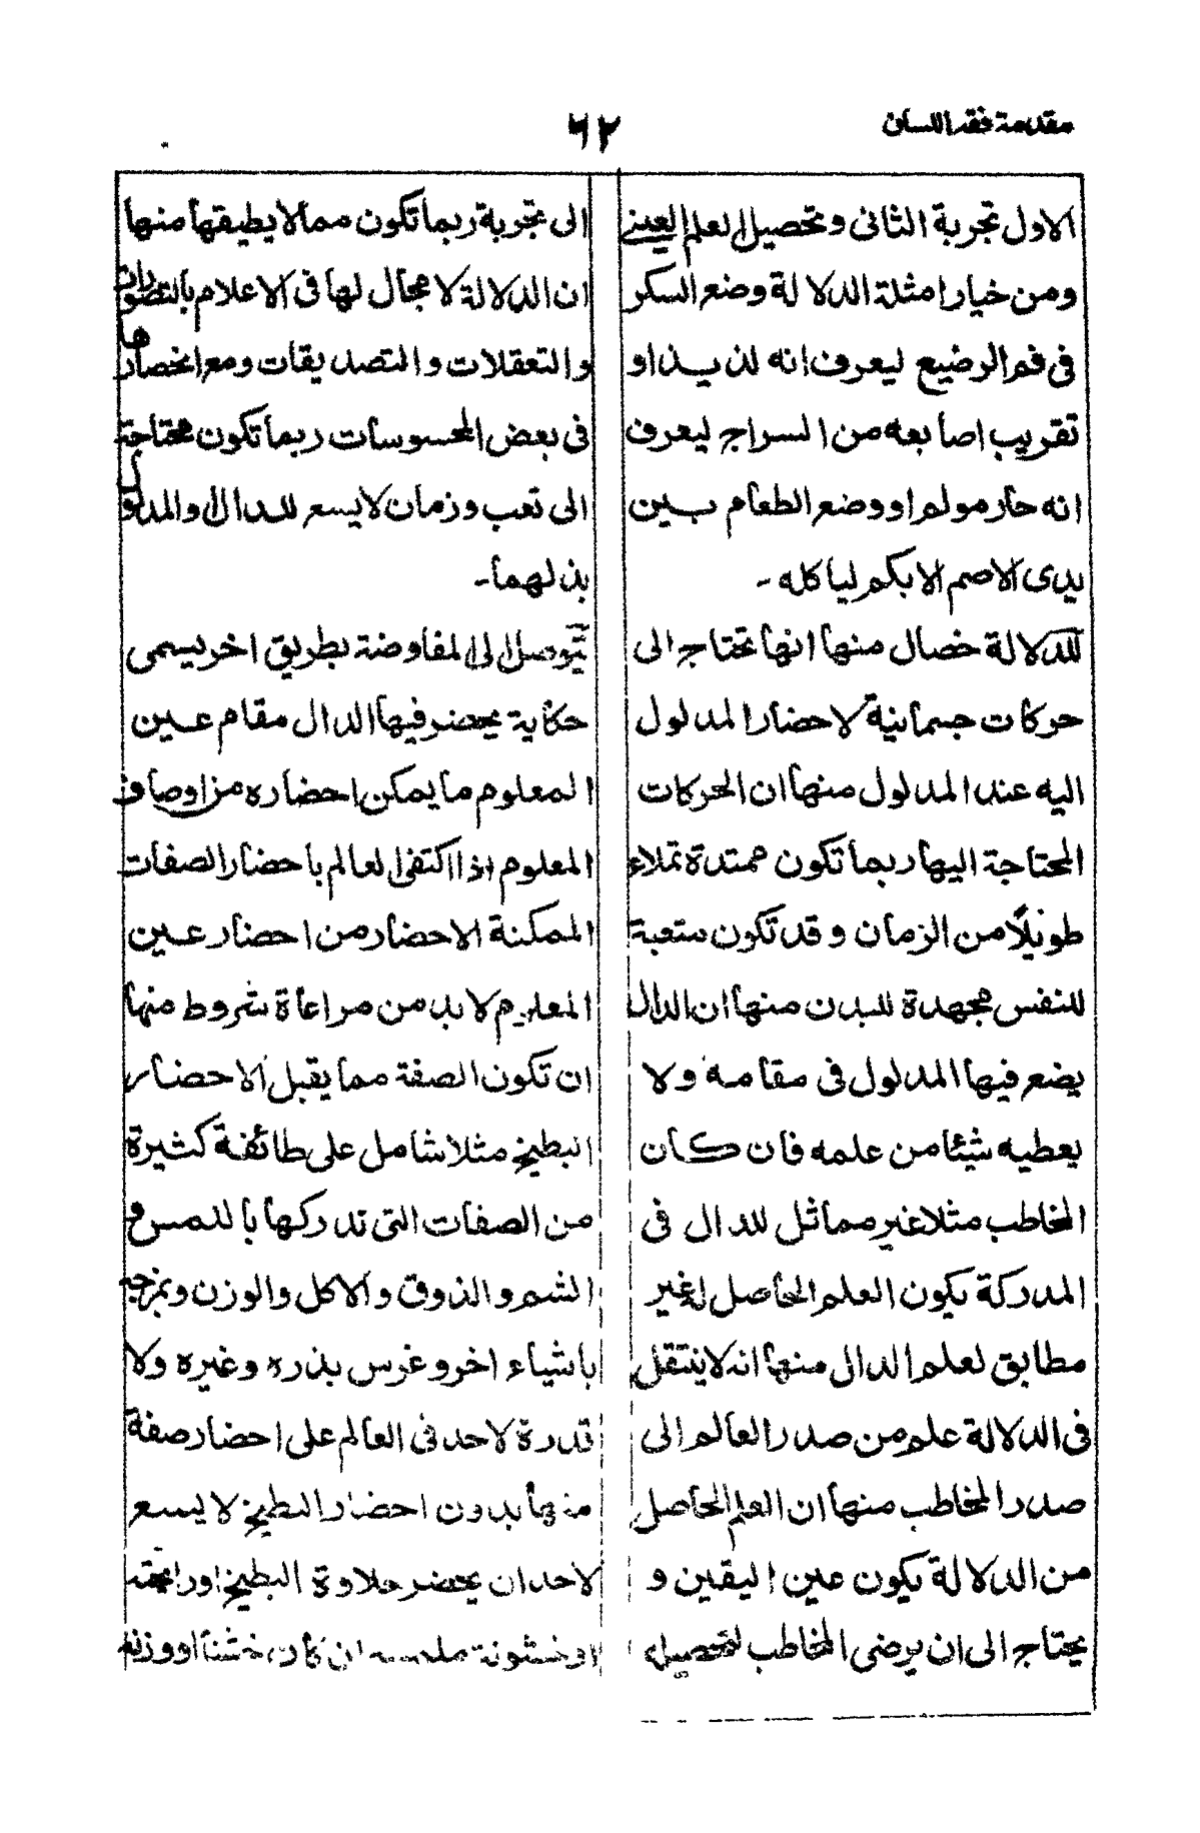 مقدمة فقه اللسان
٦٢
الاول تجربة الثانى وتحصيل العلم العينى
ومن خيار امثلة الدلالة وضع السكر
فى فم الرضيع ليعرف انه لذيذ او
تقريب اصابعه من السراج ليعرف
انه حار مولم او وضع الطعام بين
يدى الاصم الابكم لياكله -
للدلالة خصال منها انها تحتاج الى
حركات جسمانية لاحضار المدلول
اليه عند المدلول منها ان الحركات
المحتاجة اليها ربما تكون ممتدة تملاء
طويلاً من الزمان وقد تكون متعبة
للنفس مجهدة للبدن منها ان الدال
يضع فيها المدلول فى مقامه ولا
يعطيه شيئا من علمه فان كان
المخاطب مثلا غير مماثل للدال فى
المدركة يكون العلم الحاصل له غير
مطابق لعلم الدال منها انه لا ينتقل
فى الدلالة علم من صدر العالم الى
صدر المخاطب منها ان العلم الحاصل
من الدلالة يكون عين اليقين و
يحتاج الى ان يرضى المخاطب لتحصيله
الى تجربة ربما تكون مما لا يطيقها منها
ان الدلالة لا مجال لها فى الاعلام بالتصورات
والتعقلات والتصديقات ومع انحصارها
فى بعض المحسوسات ربما تكون محتاجة
الى تعب وزمان لا يسع للدال والمدلول
بذلهما -
يتوصل الى المفاوضة بطريق اخر يسمى
حكاية يحضر فيها الدال مقام عين
المعلوم ما يمكن احضاره من اوصاف
المعلوم اذا اكتفى العالم باحضار الصفات
الممكنة الاحضار من احضار عين
المعلوم لا بد من مراعاة شروط منها
ان تكون الصفة مما يقبل الاحضار
البطيخ مثلا شامل على طائفة كثيرة
من الصفات التى تدركها باللمس و
الشم والذوق والاكل والوزن وبمزجه
باشياء اخر وغرس بذره وغيره ولا
قدرة لاحد فى العالم على احضار صفة
منها بدون احضار البطيخ لا يسع
لاحد ان يحضر حلاوة البطيخ او رائحته
او خشونة ملمسه ان كان خشنا او وزنه